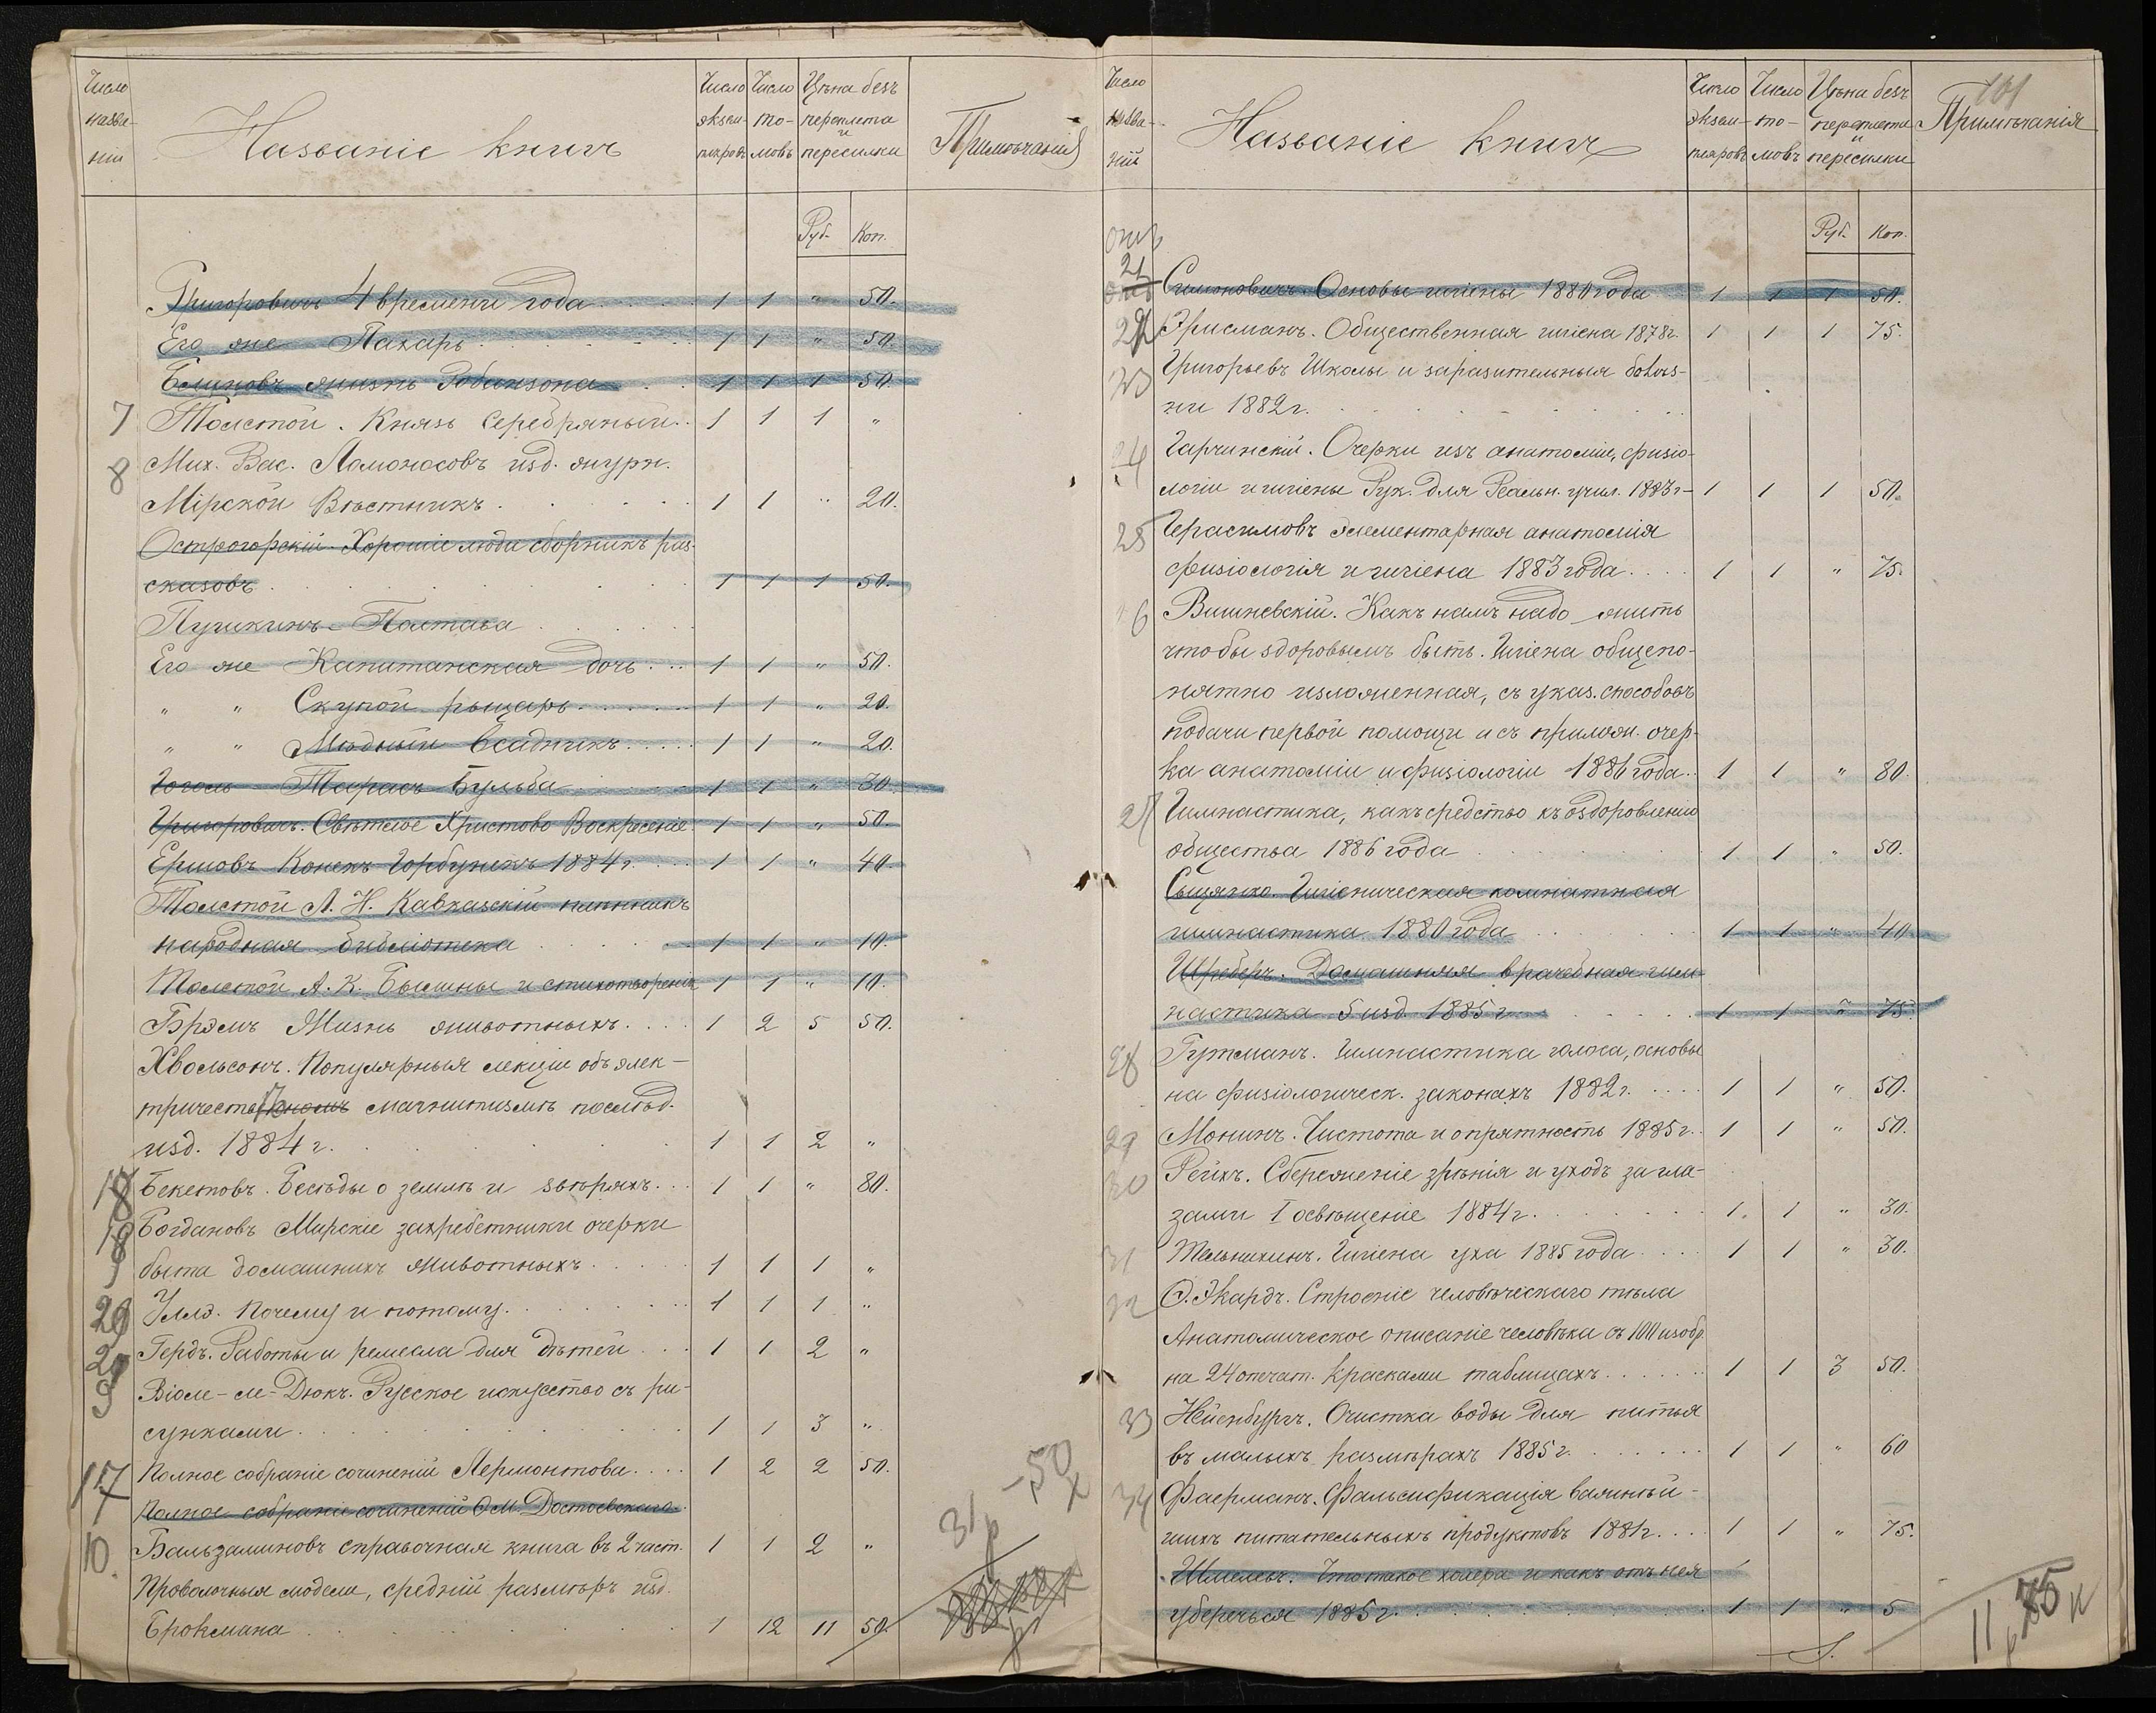 Число назва- ній
Названіе книгъ
Число экзем- пляровъ
Число то- мовъ
Цѣна безъ переплета и пересылки
Примѣчанія
Руб. Коп.
Григоровичъ 4 времени года 1 1 " 50.
Его же Пахарь 1 1 " 50.
Блиновъ жизнь Робинзона 1 1 1 50.
7 Толстой. Князь Серебряный 1 1 1 "
8 Мих. Вас. Ломоносовъ изд. журн.
Мірской Вѣстникъ 1 1 " 20.
Острогорскій. Хорошіе люди сборникъ раз-
сказовъ 1 1 1 50.
Пушкинъ - Полтава
Его же Капитанская дочь 1 1 " 50.
" " Скупой рыцарь 1 1 " 20.
" " Мѣдный всадникъ 1 1 " 20.
Гоголь Тарасъ Бульба 1 1 " 30.
Григоровичъ. Свѣтлое Христово Воскресеніе 1 1 " 50.
Ершовъ Конекъ Горбунокъ 1884 г. 1 1 " 40.
Толстой Л. Н. Кавказскій плѣнникъ
народная библіотека 1 1 " 10.
Толстой А. К. Былины и стихотворенія 1 1 " 10.
Брэмъ Жизнь животныхъ 1 2 5 50.
Хвольсонъ. Популярныя лекціи объ элек-
тричествѣ магнитизмѣ послѣд.
изд. 1884 г. 1 1 2 "
18 Бекетовъ. Бесѣды о землѣ и звѣряхъ 1 1 " 80.
19 Богдановъ Мирскіе захребетники очерки
быта домашнихъ животныхъ 1 1 1 "
20 Улло. Почему и потому 1 1 1 "
Гердъ. Работы и ремесла для дѣтей 1 1 2 "
9 Віоле-ле-Дюкъ. Русское искусство съ ри-
сунками 1 1 3 "
17 Полное собраніе сочиненій Лермонтова 1 2 2 50.
Полное собраніе сочиненій Ѳ М. Достоевскаго
10. Бальзаминовъ справочная книга въ 2 част. 1 1 2 "
Проволочныя модели, средній размѣръ изд.
Брокмана 1 12 11 50.
31 р - 50 к
Число назва- ній
Названіе книгъ
Число экзем- пляровъ
Число то- мовъ
Цѣна безъ переплета и пересылки
101
Примѣчанія
Руб. Коп.
21 Симоновичъ. Основы гигіены 1880 года 1 1 1 50.
22 Эрисманъ. Общественная гигіена 1878 г. 1 1 1 75.
23 Григорьевъ Школы и заразительныя болѣз-
ни 1882 г.
24 Гарчинскій. Очерки изъ анатоміи, физіо-
логіи и гигіены Рук. для Реальн. учил. 1883 г 1 1 1 50.
25 Герасимовъ элементарная анатомія
физіологія и гигіена 1883 года 1 1 " 75.
26 Вишневскій. Какъ намъ надо жить
чтобы здоровымъ быть. Гигіена общепо-
нятно изложенная, съ указ. способовъ
подачи первой помощи и съ прилож. очер-
ка анатоміи и физіологіи 1886 года 1 1 " 80.
27 Гимнастика, какъ средство къ оздоровленію
общества 1886 года 1 1 " 50.
Сыцянко. Гигіеническая комнатная
гимнастика 1880 года 1 1 " 40
Шреберъ. Домашняя врачебная гим-
настика 5 изд. 1885 г. 1 1 " 75
28 Гутманъ. Гимнастика голоса, основы
на физіологическ. законахъ 1882 г. 1 1 " 50.
29 Монинъ. Чистота и опрятность 1885 г. 1 1 " 50.
30 Рейхъ. Сбереженіе зрѣнія и уходъ за гла-
зами I освѣщеніе 1884 г. 1 1 " 30.
31 Мельнихинъ. Гигіена уха 1885 года 1 1 " 30.
32 Э. Экардъ. Строеніе человѣческаго тѣла
Анатомическое описаніе человѣка съ 100 изобр.
на 24 отпечат. красками таблицахъ 1 1 3 50.
33 Нейенбургъ. Очистка воды для питья
въ малыхъ размѣрахъ 1885 г. 1 1 " 60
34 Фаерманъ. Фальсификація важнѣй-
шихъ питательныхъ продуктовъ 1881 г. 1 1 " 75.
Шмелевъ. Что такое холера и какъ отъ нея
уберечься 1885 г. 1 1 " 5
11 р 75 к